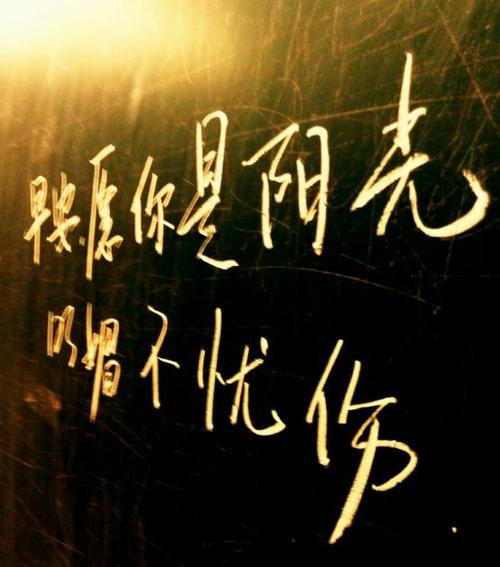 早安.愿你是阳光
明媚不忧伤.